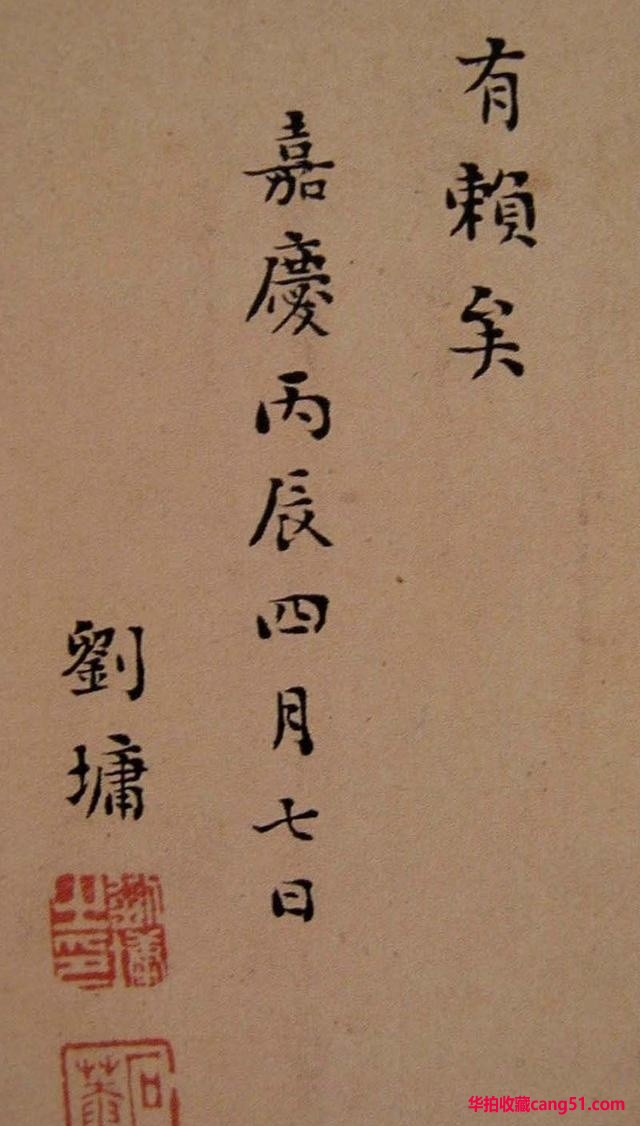 有賴矣
嘉慶丙辰四月七日
劉墉
劉墉之印
石菴
华拍收藏cang51.com